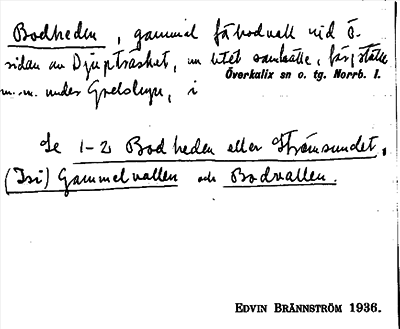 Bodheden, gammal fäbodvall vid ö.
sidan av Djupträsket, nu litet samhälle, förs, ställe
Överkalix sn o. tg. Norrb. l.
m.m. under Grelsbyn, i
Se 1-2 Bodheden eller Strömsundet,
(Isi) Gammelvallen och Bodvallen.
EDVIN BRÄNNSTRÖM 1936.